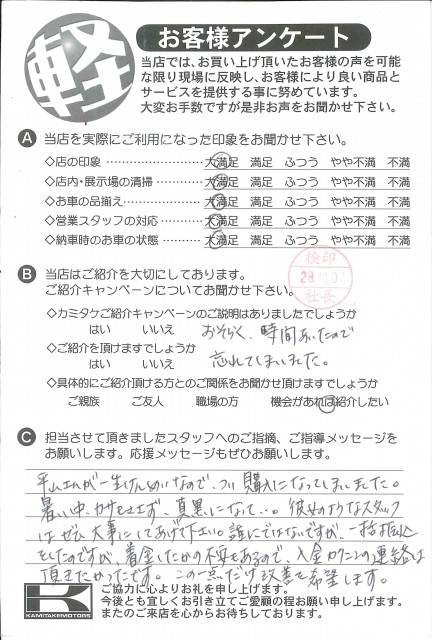 軽
お客様アンケート
当店では、お買い上げ頂いたお客様の声を可能
な限り現場に反映し、お客様により良い商品と
サービスを提供する事に努めています。
大変お手数ですが是非お声をお聞かせ下さい。
A 当店を実際にご利用になった印象をお聞かせ下さい。
◇店の印象 大満足 満足 ふつう やや不満 不満
◇店内・展示場の清掃 大満足 満足 ふつう やや不満 不満
◇お車の品揃え 大満足 満足 ふつう やや不満 不満
◇営業スタッフの対応 大満足 満足 ふつう やや不満 不満
◇納車時のお車の状態 大満足 満足 ふつう やや不満 不満
検印
社長
B 当店はご紹介を大切にしております。
ご紹介キャンペーンについてお聞かせ下さい。
◇カミタケご紹介キャンペーンのご説明はありましたでしょうか
はい いいえ おそらく、時間あいたので
◇ご紹介を頂けますでしょうか
はい いいえ 忘れてしまいました。
◇具体的にご紹介頂ける方とのご関係をお聞かせ頂けますでしょうか
ご親族 ご友人 職場の方 機会があれば紹介したい
C 担当させて頂きましたスタッフへのご指摘、ご指導メッセージを
お願いします。応援メッセージもぜひお願いします。
平山さんが一生けんめいなので、つい購入になってしまいました。
暑い中、カサもささず、真黒になって…。彼女のようなスタッフ
はぜひ大事にしてあげて下さい。誰にではないですが、一括振込
をしたのですが、着金したかの不安もあるので、入金カクニンの連絡は
頂きたかったです。この一点だけ改善を希望します。
K
KAMITAKEMOTORS
ご協力に心よりお礼を申し上げます。
今後とも宜しくお引き立てご愛顧の程お願い申し上げます。
またのご来店を心からお待ちしております。